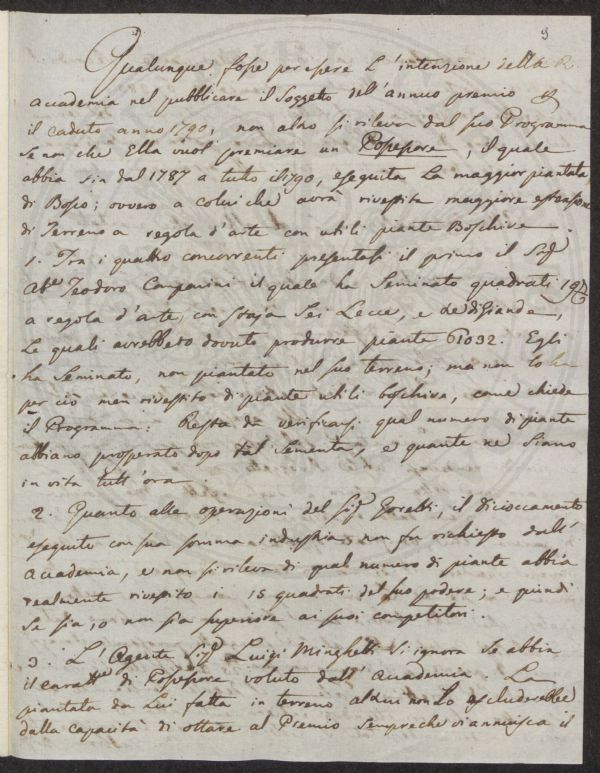 9
Qualunque fosse per essere l'intenzione della R.
accademia nel pubblicare il Soggetto dell'annuo premio
il caduto anno 1790, non altro si rileva dal suo Programma
se non che Ella vuol premiare un Possessore, il quale
abbia sin dal 1787 a tutto il 1790, eseguita la maggior piantata
di Bosco; ovvero a colui che avrà rivestita maggiore estensione
di Terreno a regola d'arte con utili piante Boschive.
1. Tra i quattro concorrenti presentasi il primo il Sigr
Abe Teodoro Companini il quale ha Seminato quadrati
a regola d'arte, con staja Sei Lecce, e di Gianda,
le quali avrebbero dovuto produrre piante 61032. Egli
ha Seminato, non piantato nel suo terreno; ma non lo ha
per ciò men rivestito di piante utili boschive, come chiede
il Programma: Resta da verificarsi qual numero di piante
abbiano prosperato dopo tal Sementa, e quante ne Siano
in vita tutt'ora.
2. Quanto alle operazioni del Sigr il dicioccamento
eseguito con sua somma industria non fu richiesto dall'
accademia, e non si rileva di qual numero di piante abbia
realmente rivestito i 15 quadrati del suo podere; e quindi
se sia, o non sia superiore ai suoi competitori.
3. L'Agente Sigr Luigi Minghetti si ignora se abbia
il caratte di Possessore voluto dall'Accademia. La
piantata da Lui fatta in terreno altrui non Lo escluderebbe
dalla capacità di ottare al Premio sempreche vi annuisca il